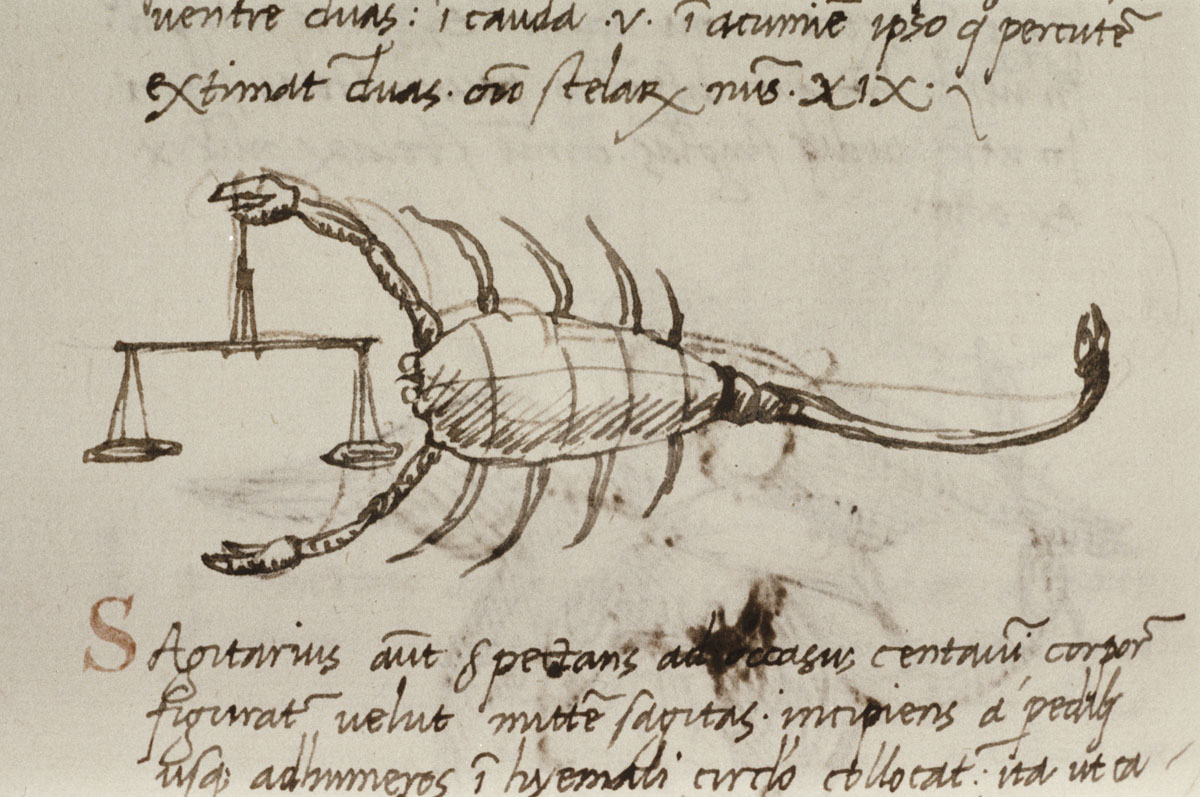 ventre duas: ī cauda .v. ī acumīe ipso q̄ percutē
extimat᷑ duas. om̄ stelaꝝ nūs. XIX.
SAgitarius aūt spectans ad occasus centauri corpor̄
figurat᷑ velut mittē sagitas. incipiens á pedibꝫ
usqꝫ ad humeros ī hyemali circlo collocat᷑: ita ut ea